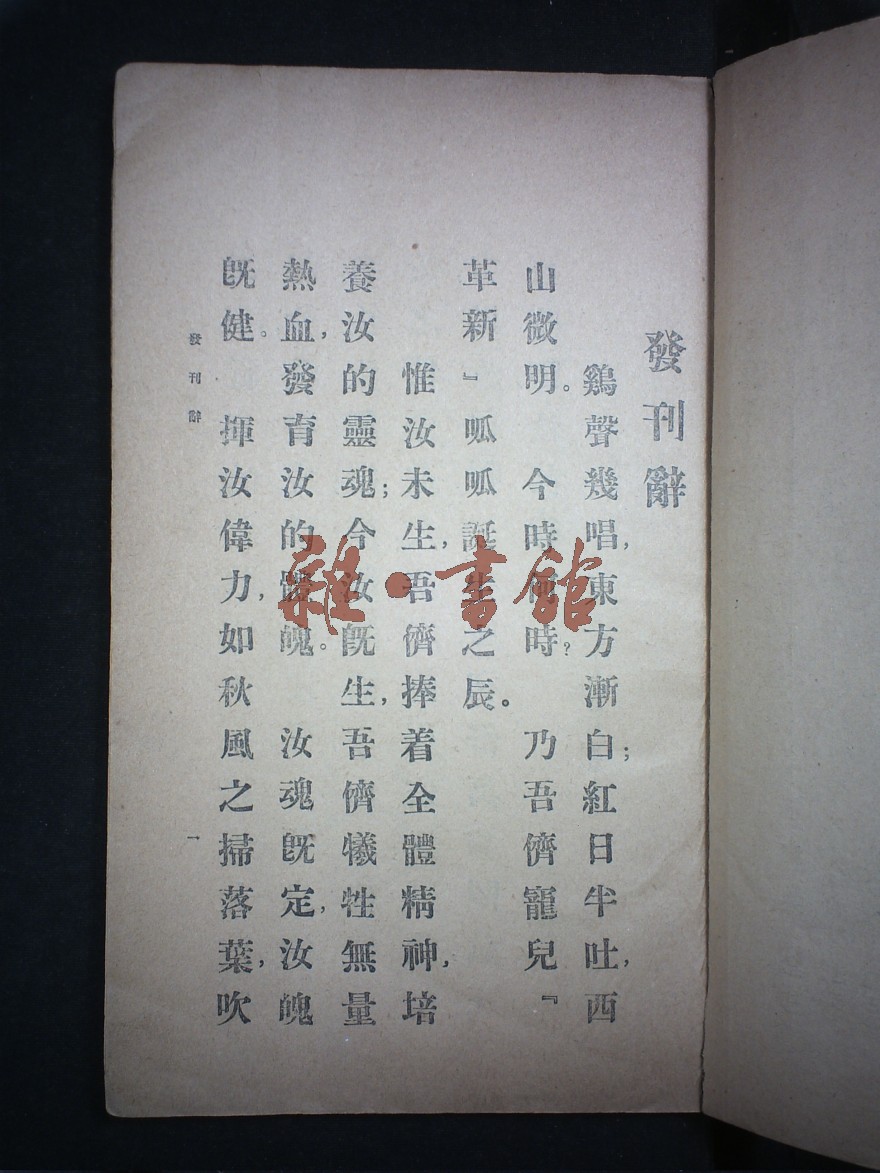 發刊辭
鷄聲幾唱，東方漸白；紅日半吐，西
山微明。今時何時？乃吾儕寵兒『
革新』呱呱誕生之辰。
惟汝未生，吾儕捧着全體精神，培
養汝的靈魂；今汝既生，吾儕犧牲無量
熱血，發育汝的體魄。汝魂既定，汝魄
既健。揮汝偉力，如秋風之掃落葉，吹
發刊辭
一
雜·書館